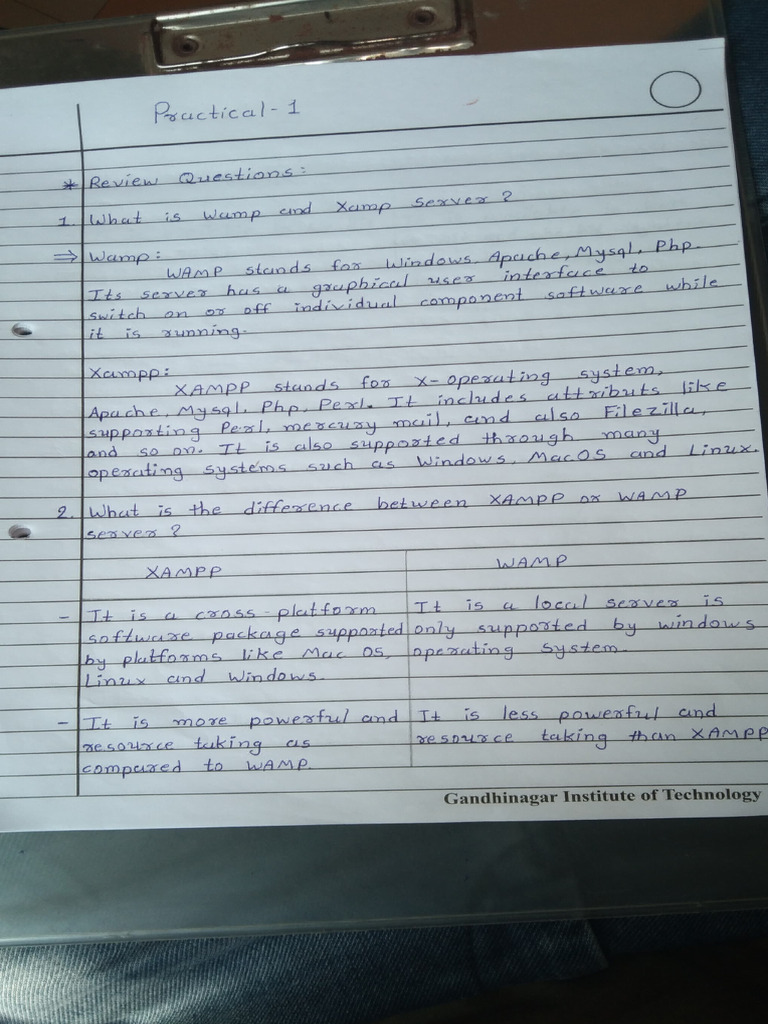 Practical-1
* Review Questions:
1. What is Wamp and Xamp server?
⇒ Wamp:
WAMP stands for Windows, Apache, Mysql, Php.
Its server has a graphical user interface to
switch on or off individual component software while
it is running.
Xampp:
XAMPP stands for X-operating system,
Apache, Mysql, Php, Perl. It includes attributs like
supporting Perl, mercury mail, and also Filezilla,
and so on. It is also supported through many
operating systems such as Windows, MacOS and Linux.
2. What is the difference between XAMPP or WAMP
server?
XAMPP WAMP
- It is a cross-platform It is a local server is
software package supported only supported by windows
by platforms like Mac OS, operating system.
Linux and Windows.
- It is more powerful and It is less powerful and
resource taking as resource taking than XAMPP
compared to WAMP.
Gandhinagar Institute of Technology